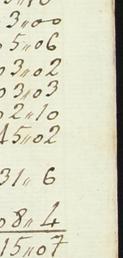 3,,00
5,,06
03,,02
03,,03
2,,10
15,,02
31,, 6
08,, 4
15,,07